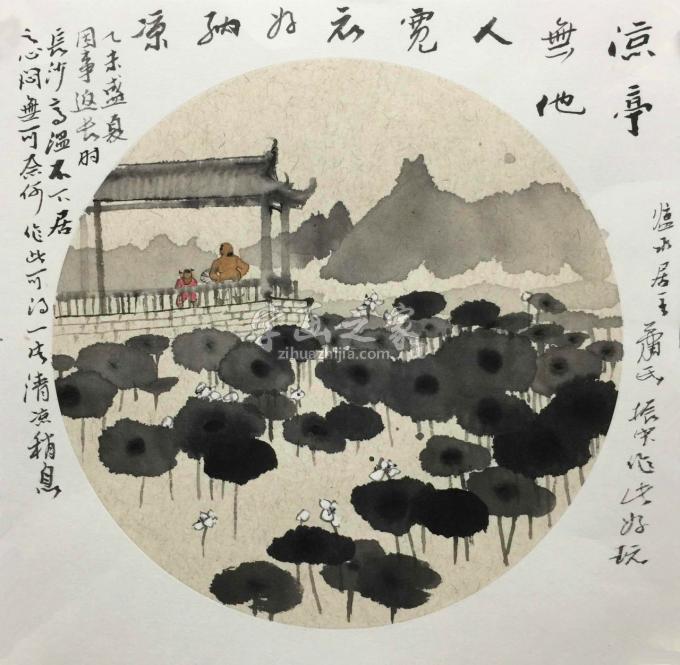 凉亭
無他
人寬衣好納凉
乙未盛夏
因事返长时
長沙高温不下居
之心悶無可奈何 作此可得一片清凉稍息
水居主 蕭氏振作此好玩
字画之家
zihuazhijia.com